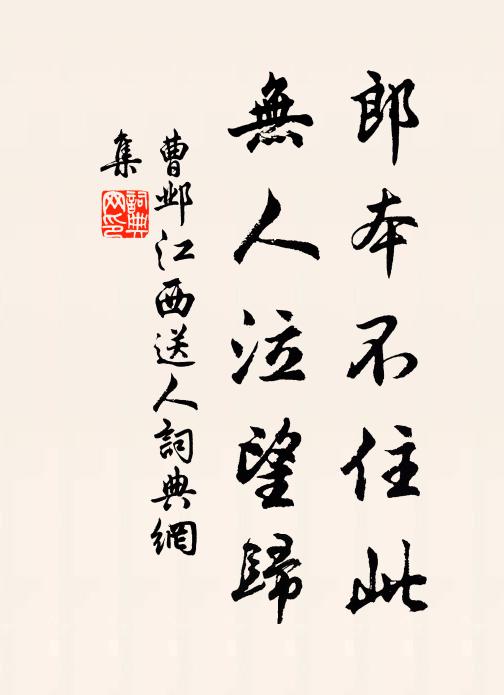 郎本不住此
無人泣望歸
曹邺江西送人詞典網
集
詞典
网印